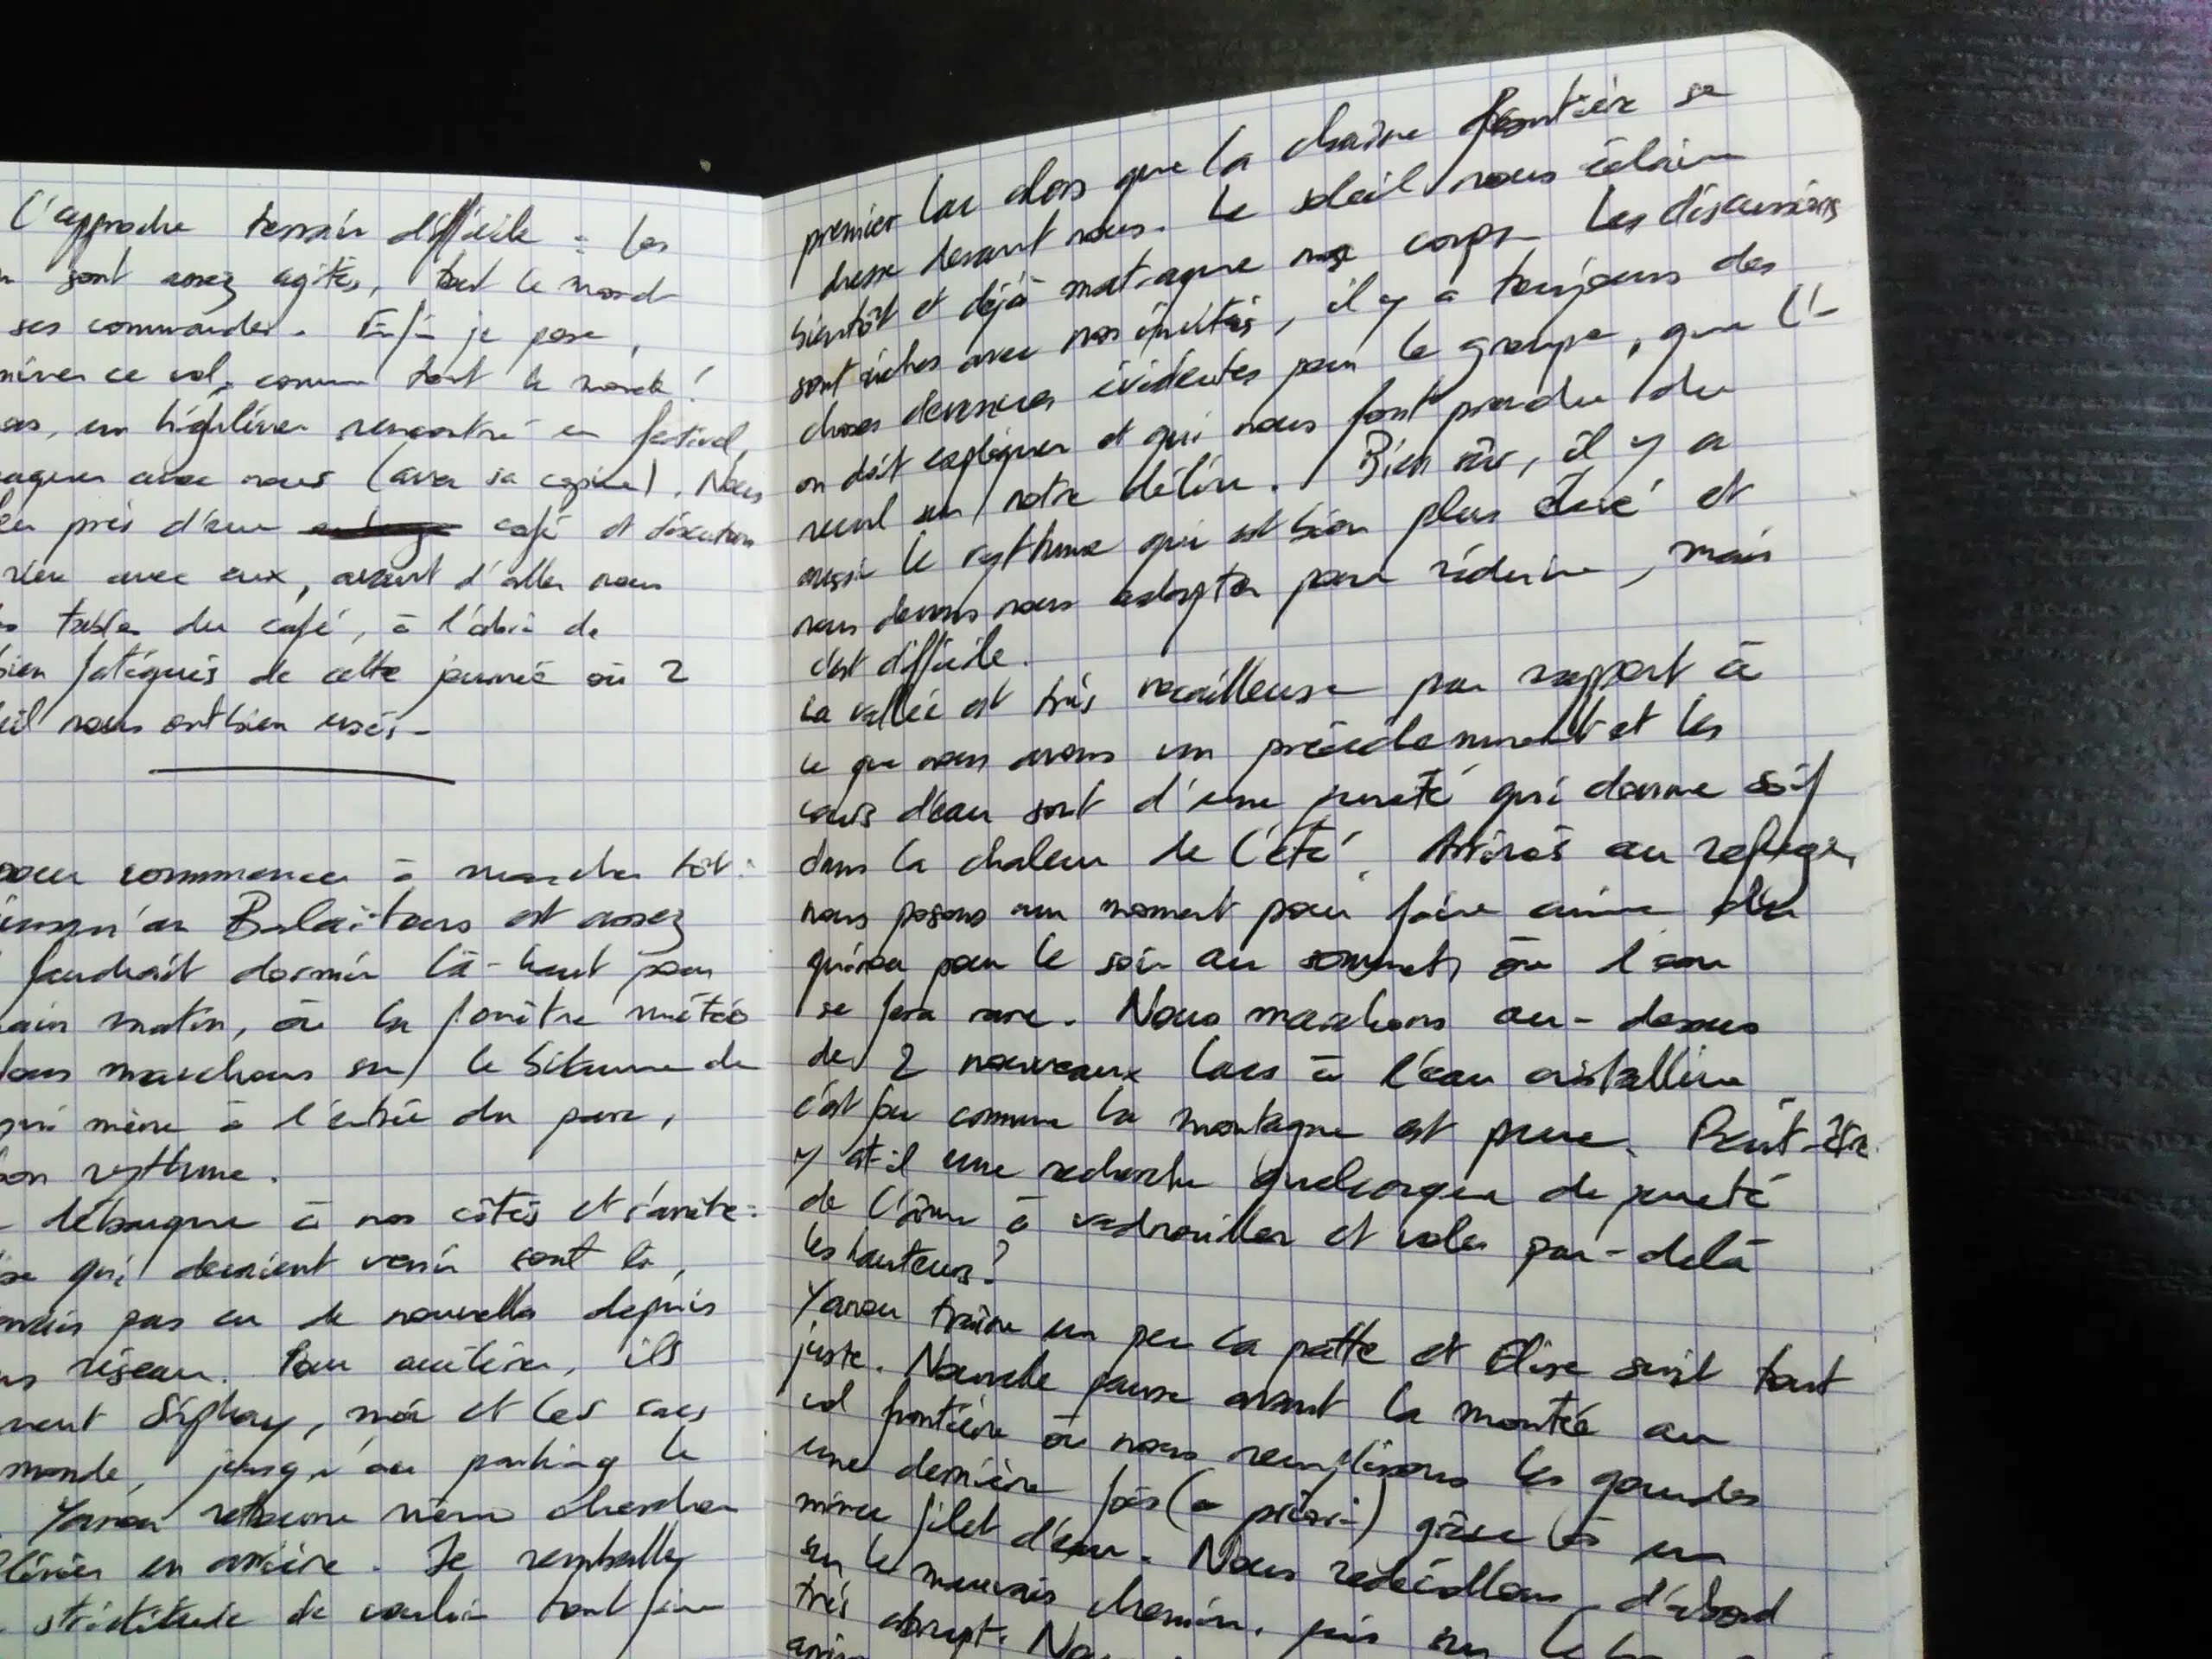 l'approche terrain difficile : les
sont assez agités, tout le monde
ses commandes. Enfin je pose,
ce vol, comme tout le monde !
un highliner rencontré en festival,
avec nous (avec sa copine). Nous
près d'un café et discutons
avec eux, avant d'aller nous
tables du café, à l'abri de
bien fatigués de cette journée où 2
nous ont bien usés.
pour commencer à marcher tôt :
jusqu'au Balaïtous est assez
faudrait dormir là-haut pour
matin, où la fenêtre météo
marchons sur le bitume de
qui mène à l'entrée du parc,
bon rythme.
débarque à nos côtés et s'arrête :
qui devaient venir sont là,
pas eu de nouvelles depuis
réseau. Pour accélérer, ils
Siphay, moi et les sacs
monde, jusqu'au parking le
Yanou retourne même chercher
en arrière. Je remballe
de vouloir tout faire
premier lac alors que la chaîne frontière se
dresse devant nous. Le soleil nous éclaire
bientôt et déjà matraque nos corps. Les discussions
sont riches avec nos invités, il y a toujours des
choses devenues évidentes pour le groupe, que l'-
on doit expliquer et qui nous font prendre du
recul sur notre délire. Bien sûr, il y a
aussi le rythme qui est bien plus élevé et
nous devons nous adapter pour réduire, mais
c'est difficile.
La vallée est très rocailleuse par rapport à
ce que nous avons vu précédemment et les
cours d'eau sont d'une pureté qui donne soif
dans la chaleur de l'été. Arrivés au refuge,
nous posons un moment pour faire cuire du
quinoa pour le soir au sommet, où l'eau
se fera rare. Nous marchons au-dessus
de 2 nouveaux lacs à l'eau cristalline
c'est fou comme la montagne est pure. Peut-être
y at-il une recherche quelconque de pureté
de l'âme à vadrouiller et voler par-delà
les hauteurs ?
Yanou traîne un peu la patte et Elise suit tout
juste. Nouvelle pause avant la montée au
col frontière où nous remplissons les gourdes
une dernière fois (a priori) grâce à un
mince filet d'eau. Nous redécollons, d'abord
sur le mauvais chemin, puis sur le
très abrupt.